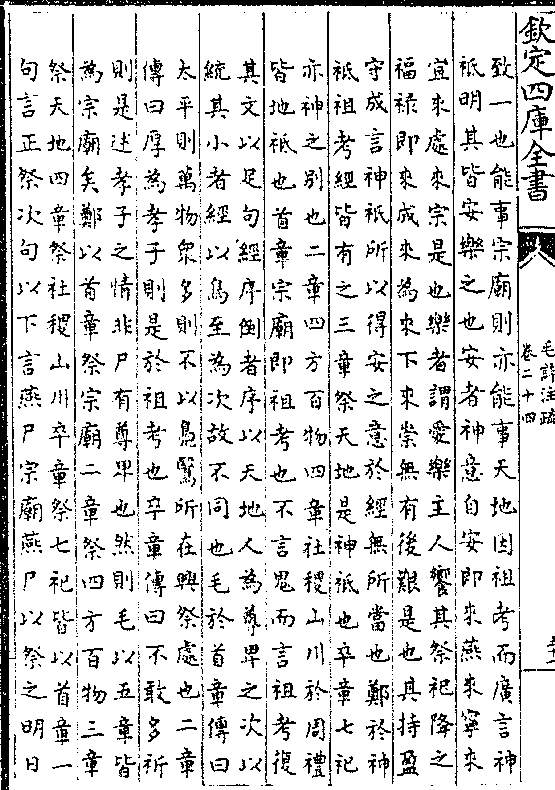 欽定四庫全書
毛詩注疏
卷二十四
致一也能事宗廟則亦能事天地因祖考而廣言神
祇明其皆安樂之也安者神意自安即來燕來寧來
宜來處來宗是也樂者謂愛樂主人饗其祭祀降之
福祿即來成來為來下來崇無有後艱是也其持盈
守成言神祇所以得安之意於經無所當也鄭於神
祇祖考經皆有之三章祭天地是神祇也卒章七祀
亦神之別也二章四方百物四章社稷山川於周禮
皆地祇也首章宗廟即祖考也不言鬼而言祖考復
其文以足句經序倒者序以天地人為尊卑之次以
統其小者經以鳥至為次故不同也毛於首章傳曰
太平則萬物衆多則不以鳧鷖所在興祭處也二章
傳曰厚為孝子則是於祖考也卒章傳曰不敢多祈
則是述孝子之情非尸有尊卑也然則毛以五章皆
為宗廟矣鄭以首章祭宗廟二章祭四方百物三章
祭天地四章祭社稷山川卒章祭七祀皆以首章一
句言正祭次句以下言燕尸宗廟燕尸以祭之明日